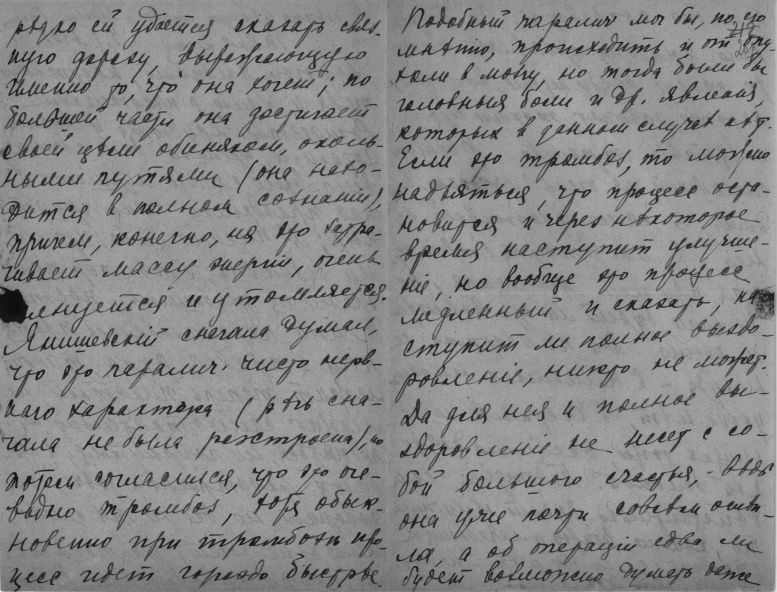 рѣдко ей удается сказать связ-
ную фразу, выражающую
именно то, что она хочет; по
большей части она достигает
своей цѣли обиняком, околь-
ными путями (она нахо-
дится в полном сознаніи),
причем, конечно, на это затра-
чивает массу энергіи, очень
лнуется и утомляется.
Янишевскій сначала думал,
что это паралич чисто нерв-
наго характера (рѣчь сна-
чала не была разстроена), но
потом согласился, что это оче-
видно тромбоз, хотя обык-
новенно при тромбозѣ про-
цесс идет гораздо быстрѣе.
Подобный паралич мог бы, по его
мнѣнію, происходить и от опу-
холи в мозгу, но тогда были бы
головныя боли и др. явленія,
которых в данном случаѣ нѣт.
Если это тромбоз, то можно
надѣяться, что процесс оста-
новится и через нѣкоторое
время наступит улучше-
ніе, но вообще это процесс
медленный и сказать, на-
ступит ли полное выздо-
ровленіе, никто не может.
Да для нея и полное вы-
здоровленіе не несет с со-
бой большого счастья, - вѣдь
она уже почти совсѣм ослѣп-
ла, а об операціи едва ли
будет возможно думать даже